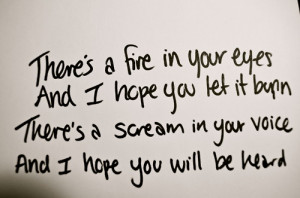 There's a fire in your eyes
And I hope you let it burn
There's a scream in your voice
And I hope you will be heard